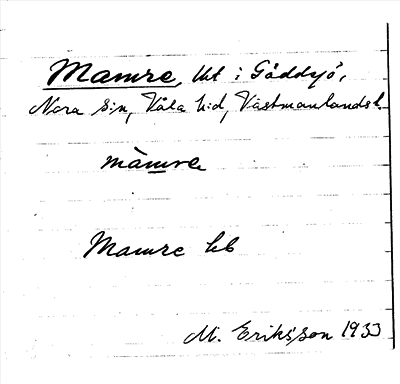 Mamre, lht i Gåddsjö,
Nora s:n, Våla h:d, Västmanlands l.
màmre
Mamre kb
M. Eriksson 1933